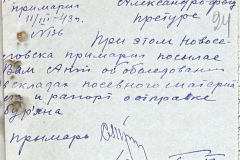 примарии
11/III-43г.
№136
Александрофельд
претуре
94
При этом Новосе-
ловска примария посылает
Вам Акт об обследовании
складах посевного материй
и рапорт о отправке
бурьяна
примарь